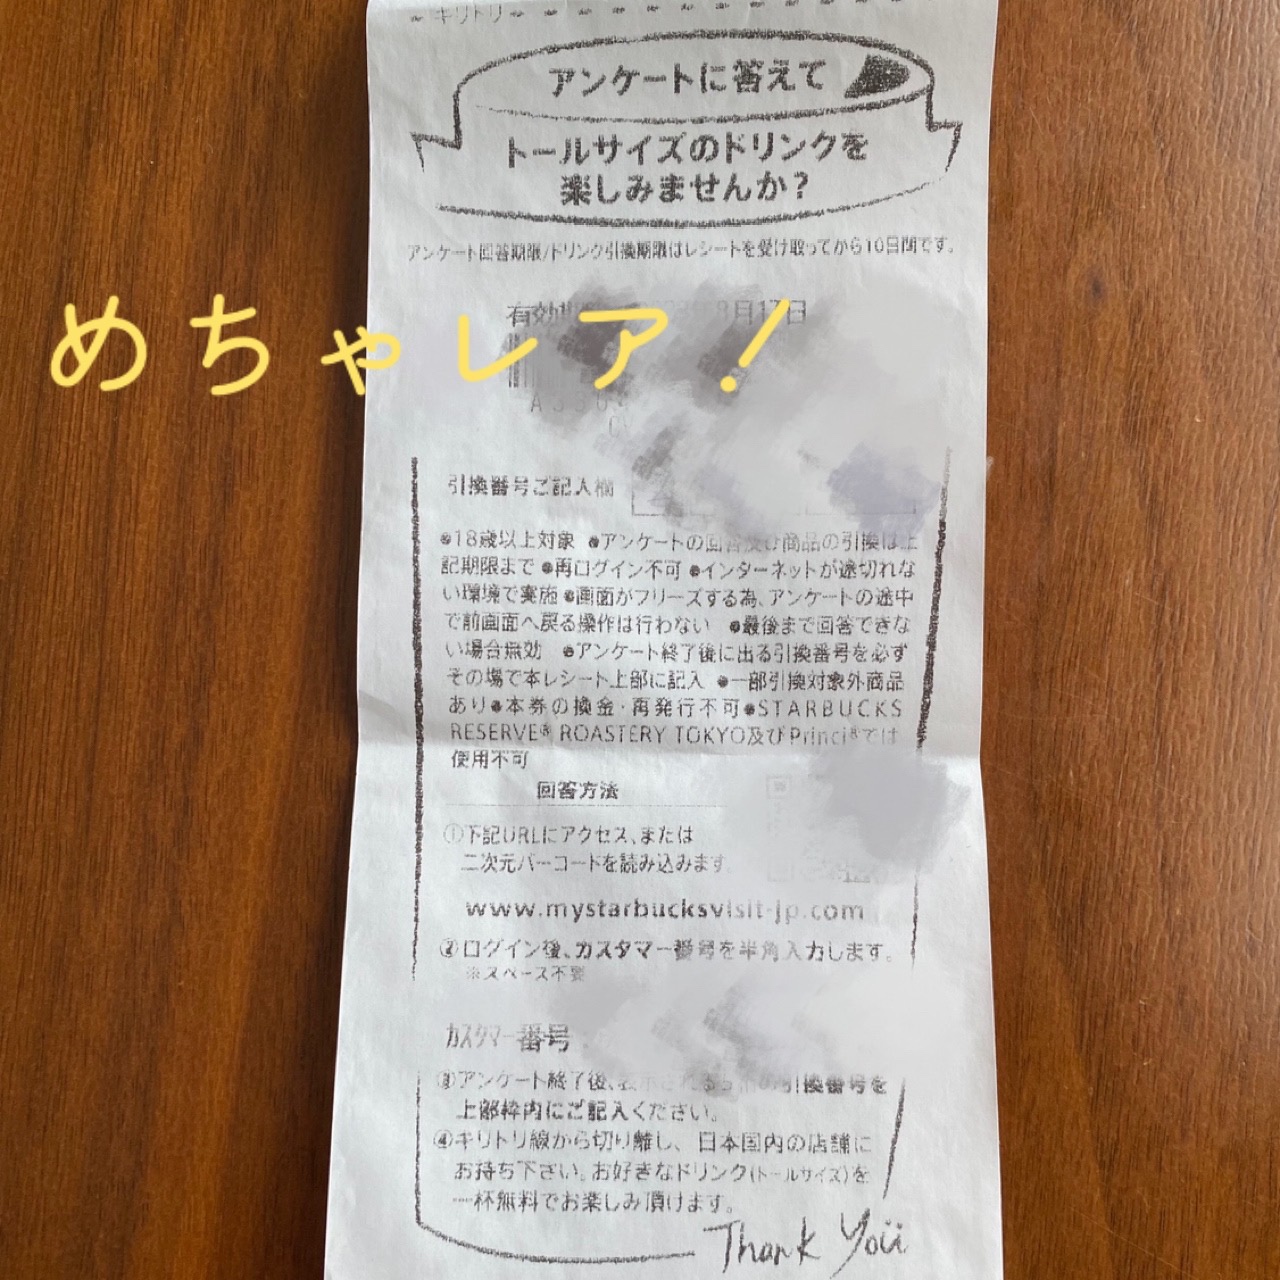 キリトリ
アンケートに答えて
トールサイズのドリンクを
楽しみませんか?
アンケート回答期限/ドリンク引換期限はレシートを受け取ってから10日間です。
めちゃレア!
引換番号ご記入欄
●18歳以上対象 ●アンケートの回答及び商品の引換は上
記期限まで ●再ログイン不可 ●インターネットが途切れな
い環境で実施 ●画面がフリーズする為、アンケートの途中
で前画面へ戻る操作は行わない ●最後まで回答できな
い場合無効 ●アンケート終了後に出る引換番号を必ず
その場で本レシート上部に記入 ●一部引換対象外商品
あり●本券の換金・再発行不可●STARBUCKS
RESERVE® ROASTERY TOKYO及びPrinci®では
使用不可
回答方法
①下記URLにアクセス、または
二次元バーコードを読み込みます。
www.mystarbucksvisit-jp.com
②ログイン後、カスタマー番号を半角入力します。
※スペース不要
カスタマー番号
③アンケート終了後、表示される5桁の引換番号を
上部枠内にご記入ください。
④キリトリ線から切り離し、日本国内の店舗に
お持ち下さい。お好きなドリンク(トールサイズ)を
一杯無料でお楽しみ頂けます。
Thank You